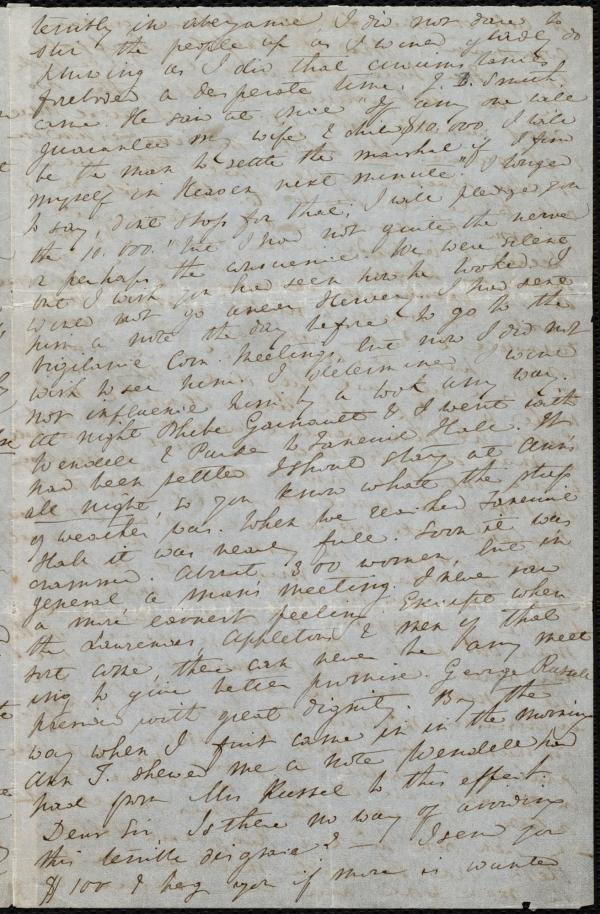 terribly in abeyance I did not dare to
stir the people up as I wired
knowing as I did that circumstances
foreboded a desperate time. J. B. Smith
came. He said at once "If any one will
guarantee my wife & child $10,000. I will
be the man to settle the marshal if I find
myself in Heaven next minute." I longed
to say, dont stop for that, I will pledge you
the 10.000." but I had not quite the nerve
or perhaps the conscience. We were silent
but I wish you had seen how he looked. I
would not go near Hervey. I had sent
him a note the day before to go to the
Vigilance Com. Meeting, but now I did not
wish to see him. I determined I would
not influence him by a look any way.
At night Phebe Garnautt & I went with
Wendell & Parker to Faneuil Hall. It
had been settled I should stay at Ann's
all night, so you know what the
of weather was. When we reached Faneuil
Hall it was nearly full. Soon it was
crammed. About 300 women, but in
general a man's meeting. I never saw
a more earnest feeling. Except when
the Lawrences, Appletons & men of that
sort come, there can never be any meet
ing to give better promise. George Russell
presided with great dignity. By the
way when I first came in in the morning
Ann T. shewed me a note Wendell had
had from Mrs Russel to this effect.
Dear Sir Is there no way of avoiding
this terrible disgrace? — I send you
$100 & beg you if more is wanted